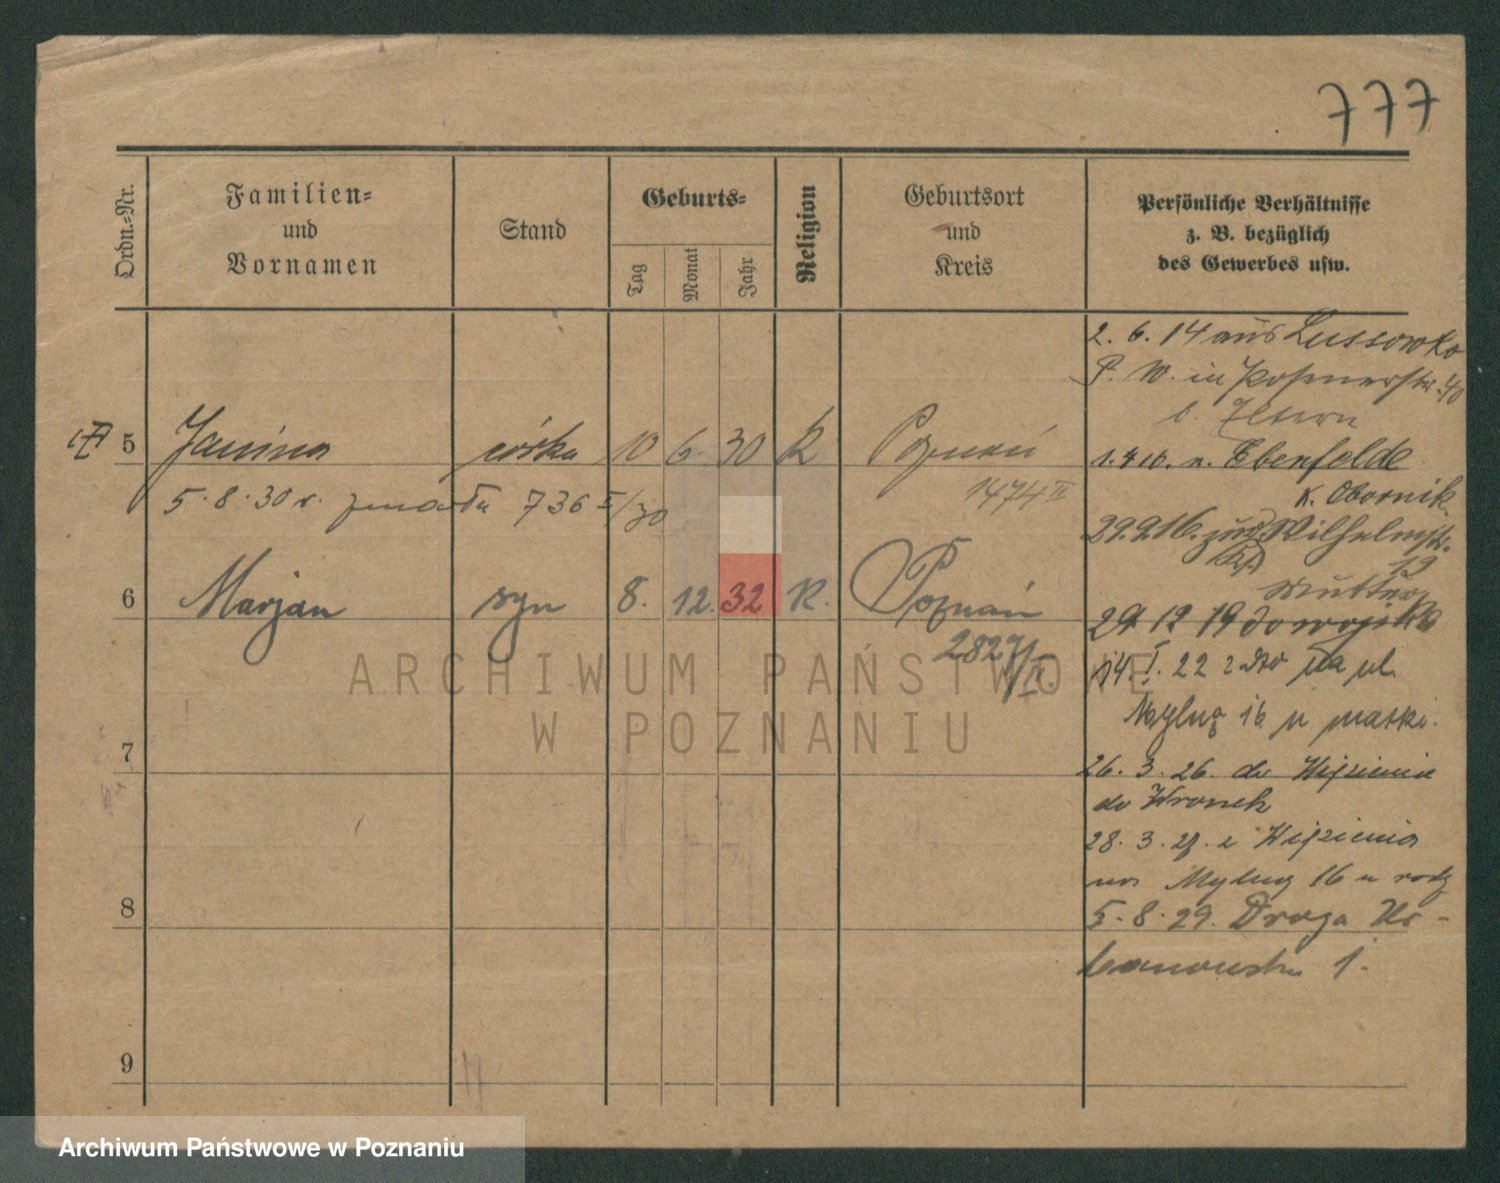 777
Ordn.-Nr.
Familien-
und
Vornamen
Stand
Geburts-
Tag
Monat
Jahr
Religion
Geburtsort
und
Kreis
Persönliche Verhältnisse
z. B. bezüglich
des Gewerbes usw.
2. 6. 14 aus Lussowko
P. W. in Posenerstr. 40
b. Eltern
5 Janina córka 10 6. 30 K Poznań
1474 II
5. 8. 30 r. zmarła 736 II/30
n. Ebenfelde
K. Obornik
29.9.16. Wilhelmstr.
19
Mutter
6 Marjan syn 8. 12. 32 K. Poznań
2827/II.
29 12 19 do wojska
14. I. 22 na pl.
Mylną 16 matki.
7
26. 3. 26. do Więzienia
do Wronek
28. 3. 27. z Więzienia
na Mylną 16 u rodz
8
5. 8. 29. Droga Ur-
banowska 1.
9
ARCHIWUM PAŃSTWOWE
W POZNANIU
Archiwum Państwowe w Poznaniu